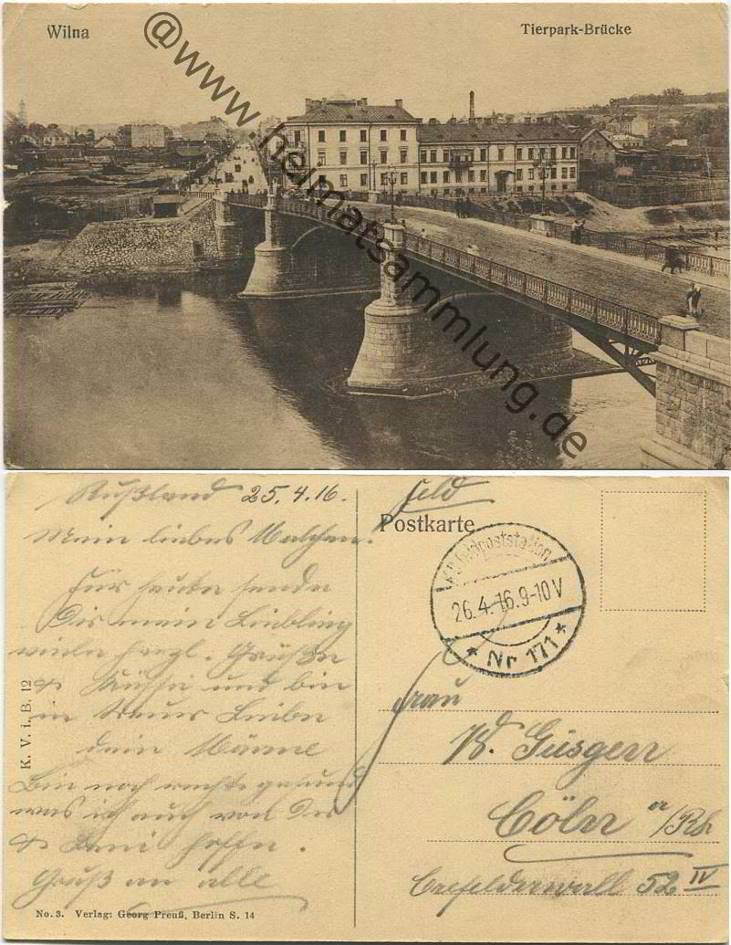 Wilna
Tierpark-Brücke
@www.heimatsammlung.de
Rußland 25.4.16.
Mein liebes Malchen!
Für heute sende
Dir mein Liebling
viele herzl. Grüße
& Küsse und bin
in treuer Liebe
dein Männe
Bin noch recht gesund
was ich auch von Dir
& hoffe.
Gruß an alle
K. V. i. B. 12
No. 3. Verlag: Georg Preuß, Berlin S. 14
Feld
Postkarte
K.D. Feldpoststation
26.4.16.9-10V
* Nr 171 *
Frau
W. Güsgen
Cöln a/Rh
Crefelderwall 52 IV